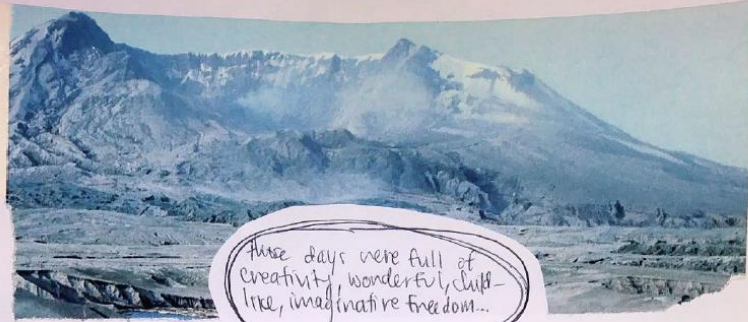 those days were full of
creativity, wonderful, child-
like, imaginative freedom...